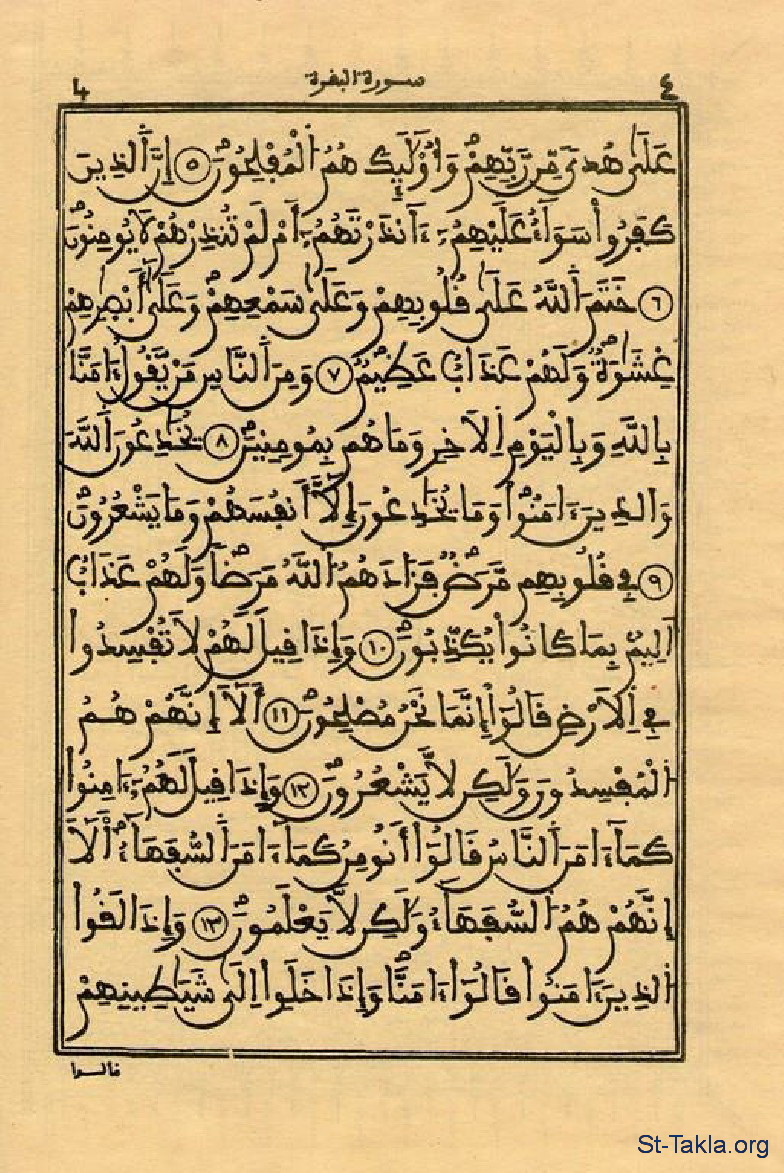 ٤ سورة البقرة 4
عَلَىٰ هُدىً مِّن رَّبِّهِمْ وَأُوْلَٰٓئِكَ هُمُ اُ۬لْمُفْلِحُونَ ٥ إِنَّ اَ۬لذِينَ
كَفَرُواْ سَوَآءٌ عَلَيْهِمُۥٓ ءَآنذَرْتَهُمُۥٓ أَمْ لَمْ تُنذِرْهُمْ لَا يُومِنُونَ
٦ خَتَمَ اَ۬للَّهُ عَلَىٰ قُلُوبِهِمْ وَعَلَىٰ سَمْعِهِمْ وَعَلَىٰٓ أَبْصَٰرِهِمْ
غِشَٰوَةٌ وَلَهُمْ عَذَابٌ عَظِيمٌ ٧ وَمِنَ اَ۬لنَّاسِ مَنْ يَّقُولُ ءَامَنَّا
بِاللَّهِ وَبِالْيَوْمِ اِ۬لَاخِرِ وَمَا هُم بِمُومِنِينَ ٨ يُخَٰدِعُونَ اَ۬للَّهَ
وَالذِينَ ءَامَنُواْ وَمَا يُخَٰدِعُونَ إِلَّآ أَنفُسَهُمْ وَمَا يَشْعُرُونَ
٩ فِي قُلُوبِهِم مَّرَضٌ فَزَادَهُمُ اُ۬للَّهُ مَرَضاً وَلَهُمْ عَذَابٌ
اَلِيمٌ بِمَا كَانُواْ يُكَذِّبُونَ ١٠ وَإِذَا قِيلَ لَهُمْ لَا تُفْسِدُواْ
فِي اِ۬لَارْضِ قَالُوٓاْ إِنَّمَا نَحْنُ مُصْلِحُونَ ١١ أَلَآ إِنَّهُمْ هُمُ
اُ۬لْمُفْسِدُونَ وَلَٰكِن لَّا يَشْعُرُونَ ١٢ وَإِذَا قِيلَ لَهُمُۥٓ ءَامِنُواْ
كَمَآ ءَامَنَ اَ۬لنَّاسُ قَالُوٓاْ أَنُومِنُ كَمَآ ءَامَنَ اَ۬لسُّفَهَآءُ أَلَآ
إِنَّهُمْ هُمُ اُ۬لسُّفَهَآءُ وَلَٰكِن لَّا يَعْلَمُونَ ١٣ وَإِذَا لَقُواْ
اُ۬لذِينَ ءَامَنُواْ قَالُوٓاْ ءَامَنَّا وَإِذَا خَلَوِاْ اِلَىٰ شَيَٰطِينِهِمْ
قالوا
St-Takla.org